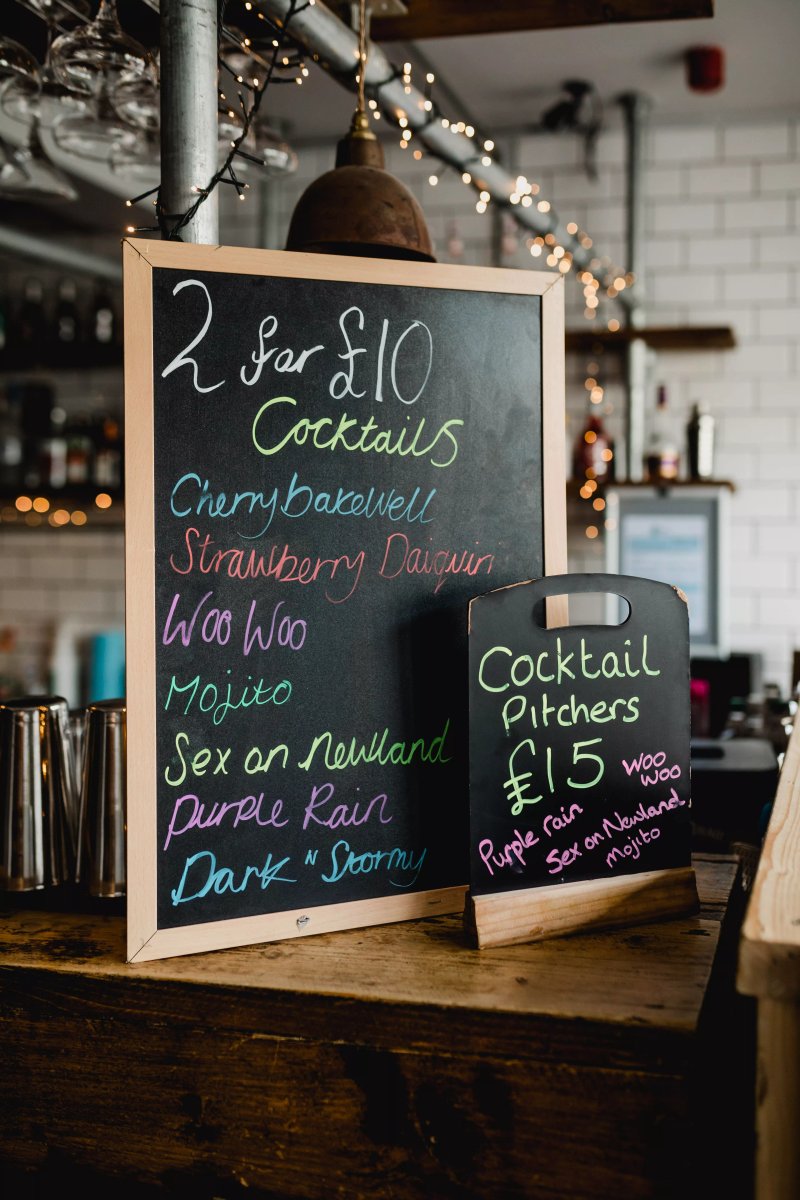 2 for £10
Cocktails
Cherry bakewell
Strawberry Daiquiri
Woo Woo
Mojito
Sex on Newland
Purple Rain
Dark "N Stormy
Cocktail
Pitchers
£15
Woo
Woo
Purple rain
Sex on Newland
Mojito